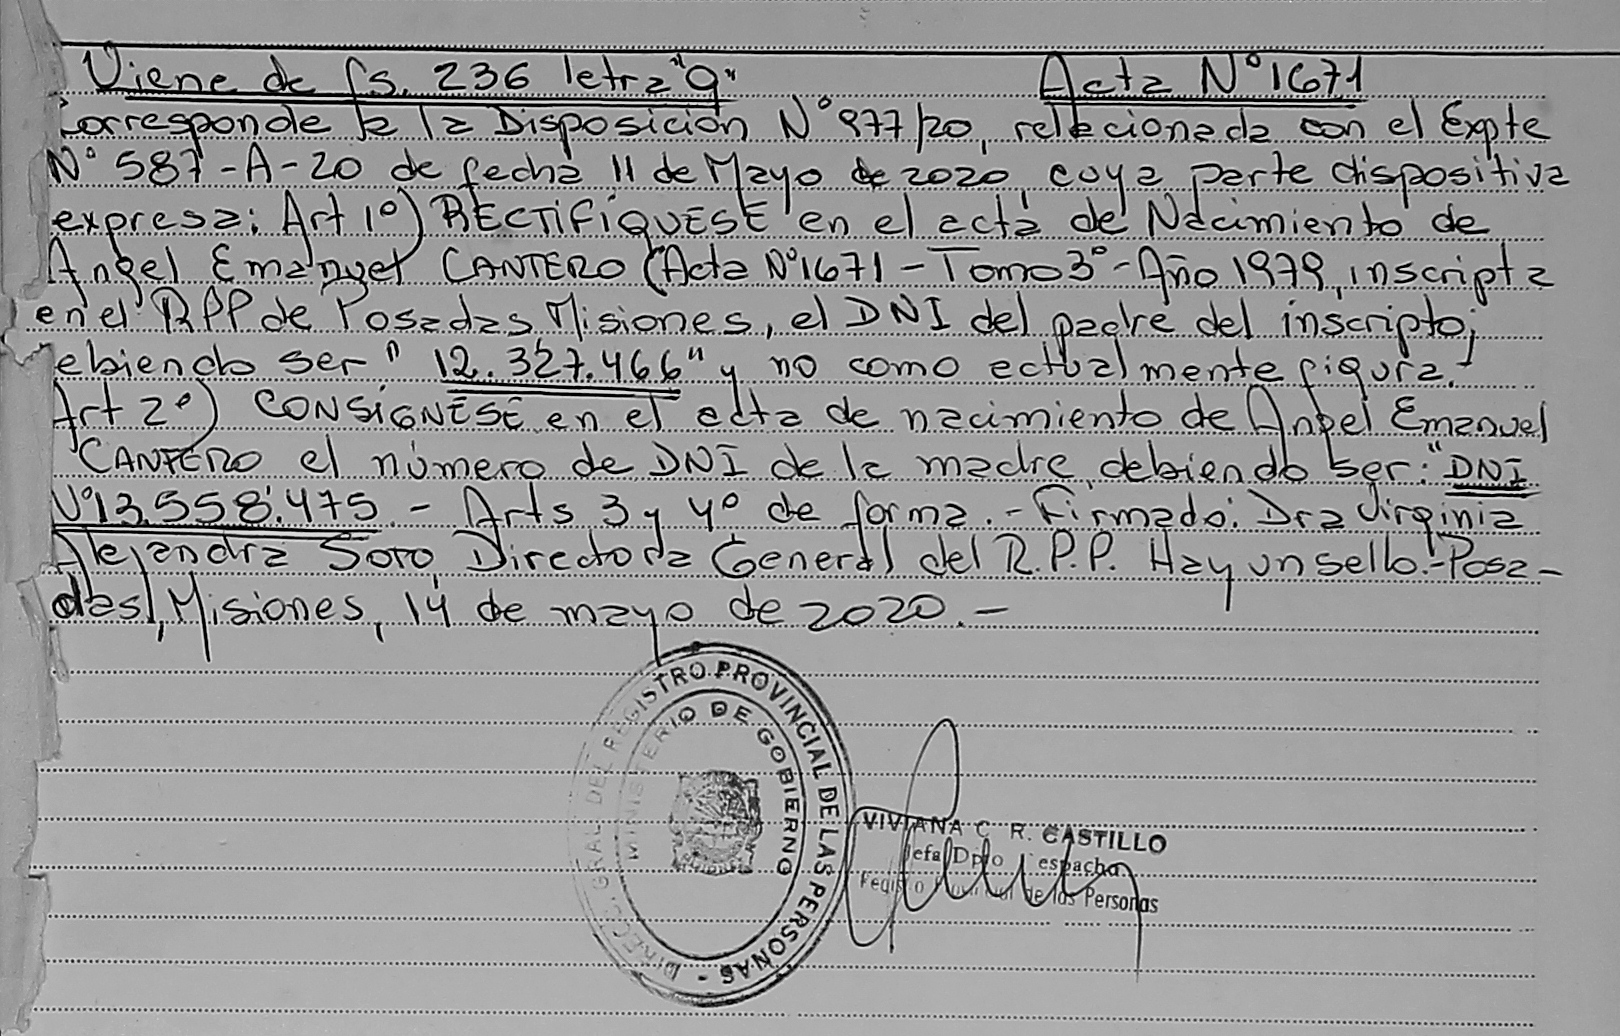 Viene de fs. 236 letra "g" Acta N° 1671
Corresponde a la Disposición N° 977/20, relacionada con el Expte
N° 587-A-20 de fecha 11 de Mayo de 2020, cuya parte dispositiva
expresa: Art 1°) RECTIFÍQUESE en el acta de Nacimiento de
Angel Emanuel CANTERO (Acta N° 1671 - Tomo 3° - Año 1979, inscripta
en el RPP de Posadas Misiones, el DNI del padre del inscripto;
ebiendo ser " 12.327.466" y no como actualmente figura.-
Art 2°) CONSÍGNESE en el acta de nacimiento de Angel Emanuel
CANTERO el número de DNI de la madre, debiendo ser: "DNI
N° 13.558.475.- Arts 3 y 4° de forma.- Firmado: Dra Virginia
Alejandra Soto Directora General del R.P.P. Hay un sello.- Posa-
das, Misiones, 14 de mayo de 2020.-
DIRECC. GRAL DEL REGISTRO PROVINCIAL DE LAS PERSONAS -
MINISTERIO DE GOBIERNO
VIVIANA C. R. CASTILLO
Jefa Dpto espacho
de las Personas